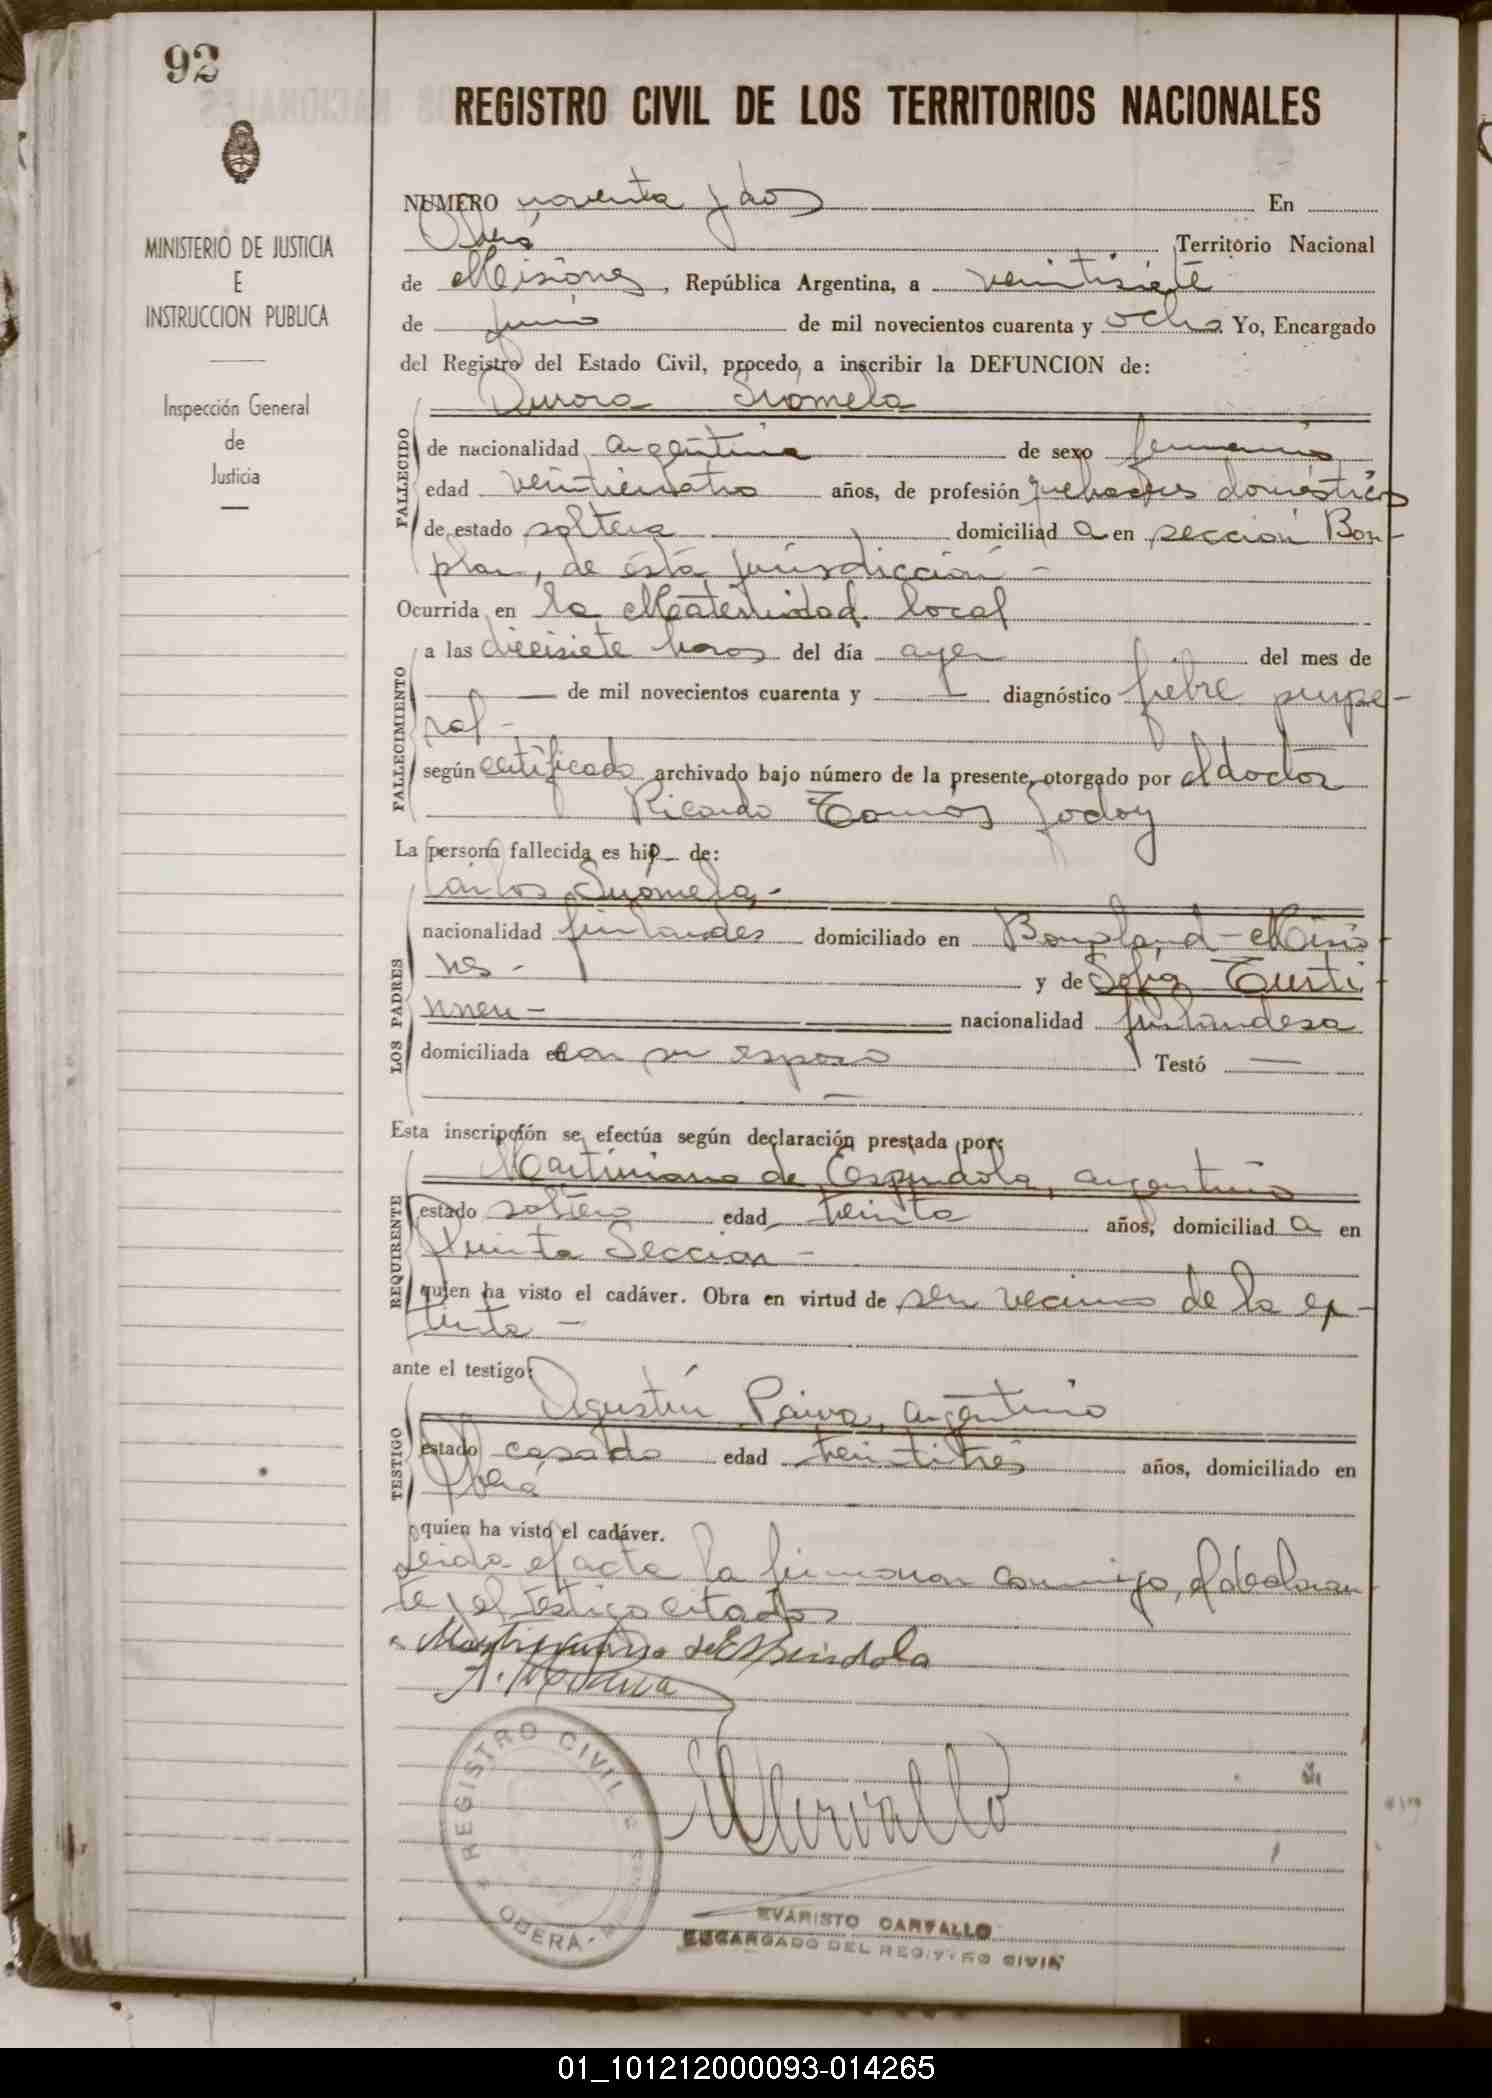 92
REGISTRO CIVIL DE LOS TERRITORIOS NACIONALES
MINISTERIO DE JUSTICIA
E
INSTRUCCION PUBLICA
Inspección General
de
Justicia
NUMERO noventa y dos En
Oberá Territorio Nacional
de Misiones, República Argentina, a veintisiete
de junio de mil novecientos cuarenta y ocho. Yo, Encargado
del Registro del Estado Civil, procedo, a inscribir la DEFUNCION de:
Aurora Suomela
FALLECIDO
de nacionalidad argentina de sexo femenino
edad veinticuatro años, de profesión quehaceres domésticos
de estado soltera domiciliad a en sección Bon-
plan, de ésta jurisdicción -
Ocurrida en la Maternidad local
FALLECIMIENTO
a las diecisiete horas del día ayer del mes de
— de mil novecientos cuarenta y — diagnóstico fiebre puerpe-
ral -
según certificado archivado bajo número de la presente, otorgado por el doctor
Ricardo Tomás Godoy
La persona fallecida es hij de:
Carlos Suomela, -
LOS PADRES
nacionalidad finlandes domiciliado en Bonpland - Misio-
nes - y de Sofia Tursti-
nnen - nacionalidad finlandesa
domiciliada en con su esposo Testó —
—
Esta inscripción se efectúa según declaración prestada por:
Martiniano de Espindola, argentino
REQUIRENTE
estado soltero edad treinta años, domiciliad a en
Quinta Sección -
quien ha visto el cadáver. Obra en virtud de ser vecino de la ex-
tinta -
ante el testigo:
Agustín Paiva, argentino
TESTIGO
estado casado edad treintitres años, domiciliado en
Oberá
quien ha visto el cadáver.
Leida el acta la firmaron conmigo, el declaran-
te y el testigo citados
Martiniano de Espindola
REGISTRO CIVIL
OBERÁ -
ECarvallo
EVARISTO CARVALLO
ENCARGADO DEL REGISTRO CIVIL
01_101212000093-014265